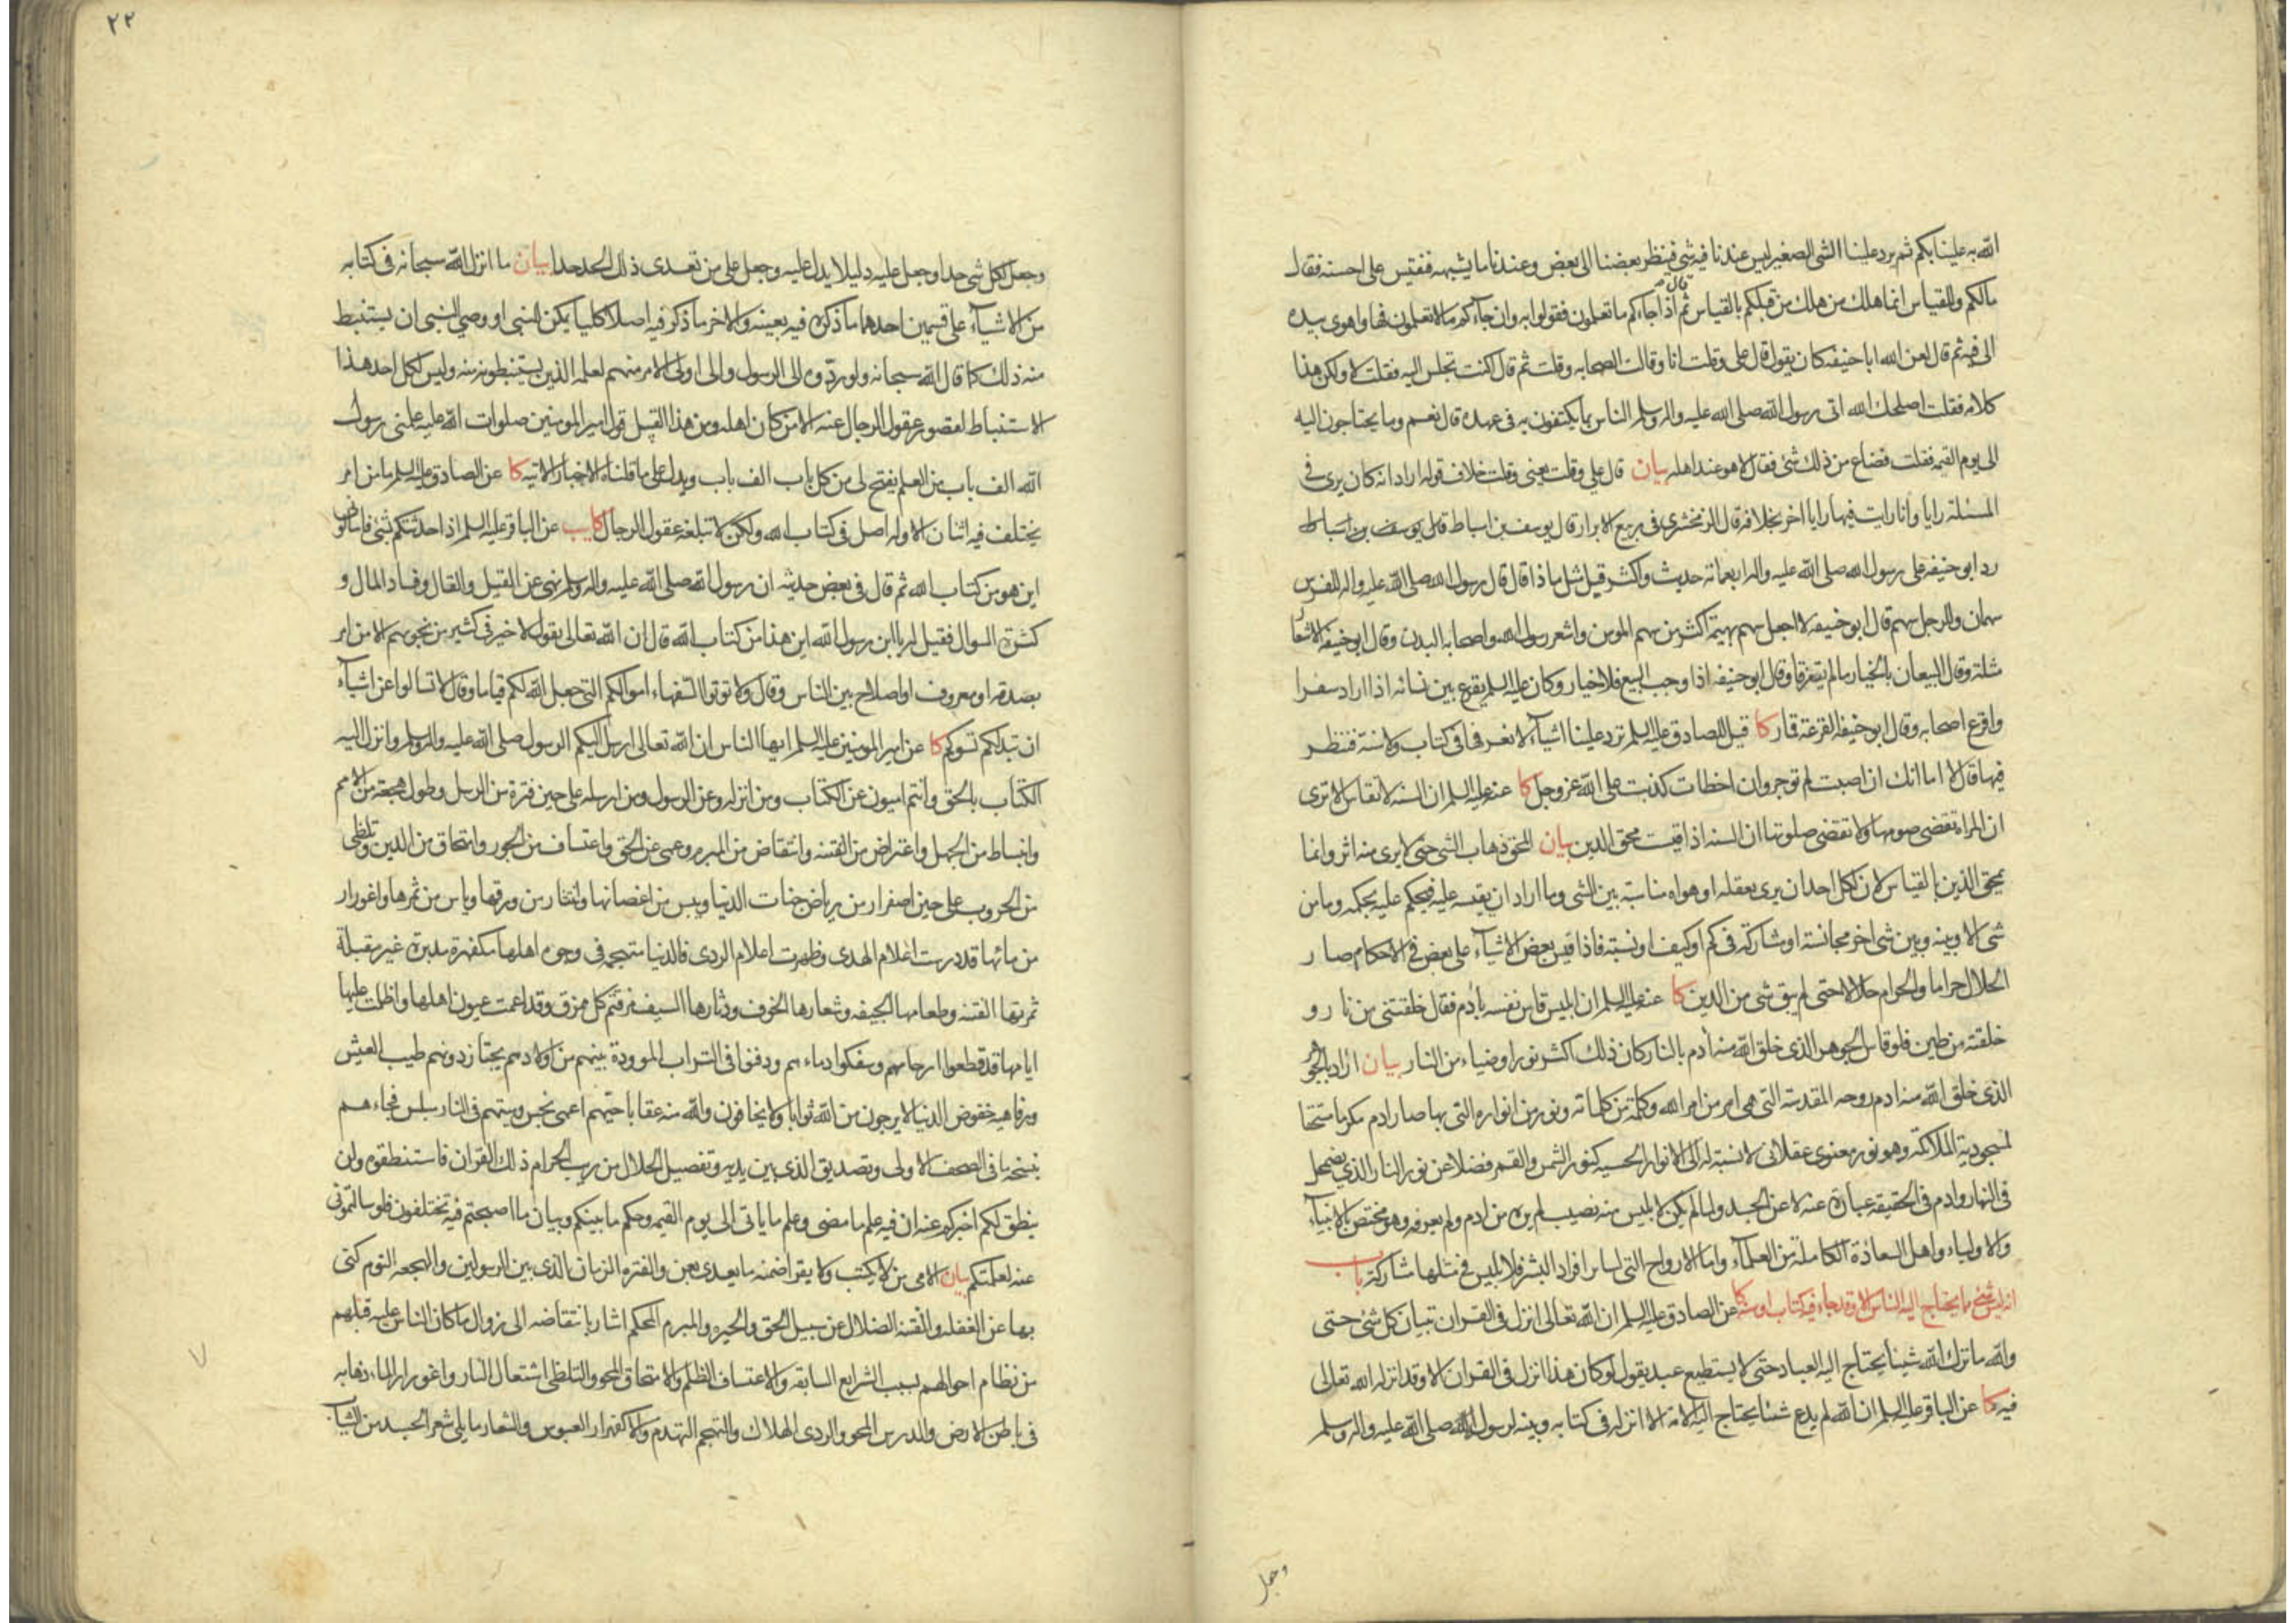 الله به علينا بكم ثم يرد علينا الشى الصغير ليس عندنا فيه شى فينظر بعضنا الى بعض وعندنا ما يشبهه فنقيس على احسنه فقال
مالكم وللقياس انما هلك من هلك من قبلكم بالقياس ثم قال اذا جاءكم ما تعلمون فقولوا به وان جآءكم مالا تعلمون فها واهوى بيده
الى فيه ثم قال لعن الله ابا حنيفه كان يقول قال على وقلت انا وقالت الصحابه وقلت ثم قال اكنت تجلس اليه فقلت لا ولكن هذا
كلامه فقلت اصلحك الله اتى رسول الله صلى الله عليه واله وسلم الناس بما يكتفون به فى عهده قال نعم وما يحتاجون اليه
الى يوم القيمه فقلت فضاع من ذلك شئ فقال لا هو عند اهله بيان قال على وقلت يعنى وقلت خلاف قوله اراد انه كان يرى فى
المسئلة رايا وانا رايت فيها رايا اخر بخلافه قال الزمخشرى فى ربيع الابرار قال يوسف بن اسباط قال يوسف بن اسباط
رد ابو حنيفه على رسول الله صلى الله عليه واله اربعمائة حديث واكثر قيل مثل ماذا قال قال رسول الله صلى الله عليه واله للفرس
سهمان وللرجل سهم قال ابو حنيفه لا اجعل سهم بهيمة اكثر من سهم المومن واشعر رسول الله واصحابه البدن وقال ابو حنيفه الاشعار
مثلة وقال البيعان بالخيار مالم يتفرقا وقال ابو حنيفه اذا وجب البيع فلا خيار وكان عليه السلم يقرع بين نسائه اذا اراد سفرا
واقرع اصحابه وقال ابو حنيفه القرعة قمار كا قيل للصادق عليه السلم ترد علينا اشيآء لا نعرفها فى كتاب ولا سنة فننظر
فيها قال لا اما انك ان اصبت لم توجر وان اخطات كذبت على الله عز وجل كا عنه عليه السلم ان السنه لا تقاس الا ترى
ان المراة تقضى صومها ولا تقضى صلوتها ان السنه اذا قيست محق الدين بيان المحق ذهاب الشى حتى لا يرى منه اثر وانما
يمحق الدين بالقياس لان لكل احد ان يرى بعقله او هواه مناسبة بين الشى وما اراد ان يقيسه عليه فيحكم عليه بحكمه وما من
شى الا وبينه وبين شى اخر مجانسة او مشاركة فى كم او كيف او نسبة فاذا قيس بعض الاشيآء على بعض فى الاحكام صار
الحلال حراما والحرام حلالا حتى لم يبق شى من الدين كا عنه عليه السلم ان ابليس قاس نفسه بآدم فقال خلقتنى من نار و
خلقته من طين فلو قاس الجوهر الذى خلق الله منه آدم بالنار كان ذلك اكثر نورا وضياء من النار بيان اراد بالجوهر
الذى خلق الله منه ادم روحه المقدسة التى هى امر من امر الله وكلمة من كلماته ونور من انواره التى بها صار ادم مكرما مستحقا
لمسجودية الملائكة وهو نور معنوى عقلانى لا نسبة له الى الانوار الحسيه كنور الشمس والقمر فضلا عن نور النار الذى يضمحل
فى النهار وادم فى الحقيقة عبارة عنه لا عن الجسد ولما لم يكن لابليس منه نصيب لم يره من ادم ولم يعرفه وهو مختص بالانبياء
والاولياء واهل السعادة الكاملة من العلمآء واما الارواح التى لساير افراد البشر فلابليس فى مثلها مشاركة باب
انه ليس شئ مما يحتاج اليه الناس الا وقد جاء فيه كتاب او سنة كا عن الصادق عليه السلم ان الله تعالى انزل فى القران تبيان كل شئ حتى
والله ما ترك الله شيئا يحتاج اليه العباد حتى لا يستطيع عبد يقول لو كان هذا انزل فى القران الا وقد انزله الله تعالى
فيه كا عن الباقر عليه السلم ان الله لم يدع شيئا يحتاج اليه الامة الا انزله فى كتابه وبينه لرسول الله صلى الله عليه واله وسلم
وجعل
٢٢
وجعل لكل شى حدا وجعل عليه دليلا يدل عليه وجعل على من تعدى ذلك الحد حدا بيان ما انزل الله سبحانه فى كتابه
من الاشيآء على قسمين احدهما ما ذكره فيه بعينه والاخر ما ذكر فيه اصلا كليا يمكن للنبى او وصى النبى ان يستنبط
منه ذلك كما قال الله سبحانه ولو ردوه الى الرسول والى اولى الامر منهم لعلمه الذين يستنبطونه منه وليس لكل احد هذا
الاستنباط لقصور عقول الرجال عنه الا من كان اهله ومن هذا القبيل قول امير المومنين صلوات الله عليه علمنى رسول
الله الف باب من العلم يفتح لى من كل باب الف باب ويدل على ما قلناه الاخبار الاتيه كا عن الصادق عليه السلم ما من امر
يختلف فيه اثنان الا وله اصل فى كتاب الله ولكن لا تبلغه عقول الرجال كا يب عن الباقر عليه السلم اذا حدثتكم بشئ فاسالونى
اين هو من كتاب الله ثم قال فى بعض حديثه ان رسول الله صلى الله عليه واله وسلم نهى عن القيل والقال وفساد المال و
كثرة السوال فقيل له يا ابن رسول الله اين هذا من كتاب الله قال ان الله تعالى يقول لا خير فى كثير من نجويهم الا من امر
بصدقة او معروف او اصلاح بين الناس وقال ولا توتوا السفهاء اموالكم التى جعل الله لكم قياما وقال لا تسالوا عن اشيآء
ان تبد لكم تسوكم كا عن امير المومنين عليه السلم ايها الناس ان الله تعالى ارسل اليكم الرسول صلى الله عليه واله وسلم وانزل اليه
الكتاب بالحق وانتم اميون عن الكتاب ومن انزله وعن الرسول ومن ارسله على حين فترة من الرسل وطول هجعة من الامم
وانبساط من الجهل واعتراض من الفتنه وانتقاض من المبرم وعمى عن الحق واعتساف من الجور وامتحاق من الدين وتلظى
من الحروب على حين اصفرار من رياض جنات الدنيا ويبس من اغصانها وانتثار من ورقها وياس من ثمرها واغورار
من مائها قد درست اعلام الهدى وظهرت اعلام الردى فالدنيا متهجمة فى وجوه اهلها مكفهرة مدبرة غير مقبلة
ثمرتها الفتنه وطعامها الجيفه وشعارها الخوف ودثارها السيف مزقتم كل ممزق وقد اعمت عيون اهلها واظلمت عليها
ايامها قد قطعوا ارحامهم وسفكوا دماءهم ودفنوا فى التراب الموودة بينهم من اولادهم يجتاز دونهم طيب العيش
ورفاهيه خفوض الدنيا لا يرجون من الله ثوابا ولا يخافون والله منه عقابا حيهم اعمى نجس وميتهم فى النار مبلس فجاءهم
بنسخة ما فى الصحف الاولى وتصديق الذى بين يديه وتفصيل الحلال من ريب الحرام ذلك القران فاستنطقوه ولن
ينطق لكم اخبركم عنه ان فيه علم ما مضى وعلم ما ياتى الى يوم القيمه وحكم ما بينكم وبيان ما اصبحتم فيه تختلفون فلو سالتمونى
عنه لعلمتكم بيان الامى من لا يكتب ولا يقرا ضمنه ما يعدى بعن والفتره الزمان الذى بين الرسولين والهجعه النوم كنى
بها عن الغفله والفتنه الضلال عن سبيل الحق والحيره والمبرم المحكم اشار بانتقاضه الى زوال ما كان الناس عليه قبلهم
من نظام احوالهم بسبب الشرايع السابقه والاعتساف الظلم والامتحاق المحو والتلظى اشتعال النار واغورار الماء ذهابه
فى باطن الارض والدرس المحو والردى الهلاك والتهجم التهدم والاكفهرار العبوس والشعار ما يلى شعر الجسد من الثياب